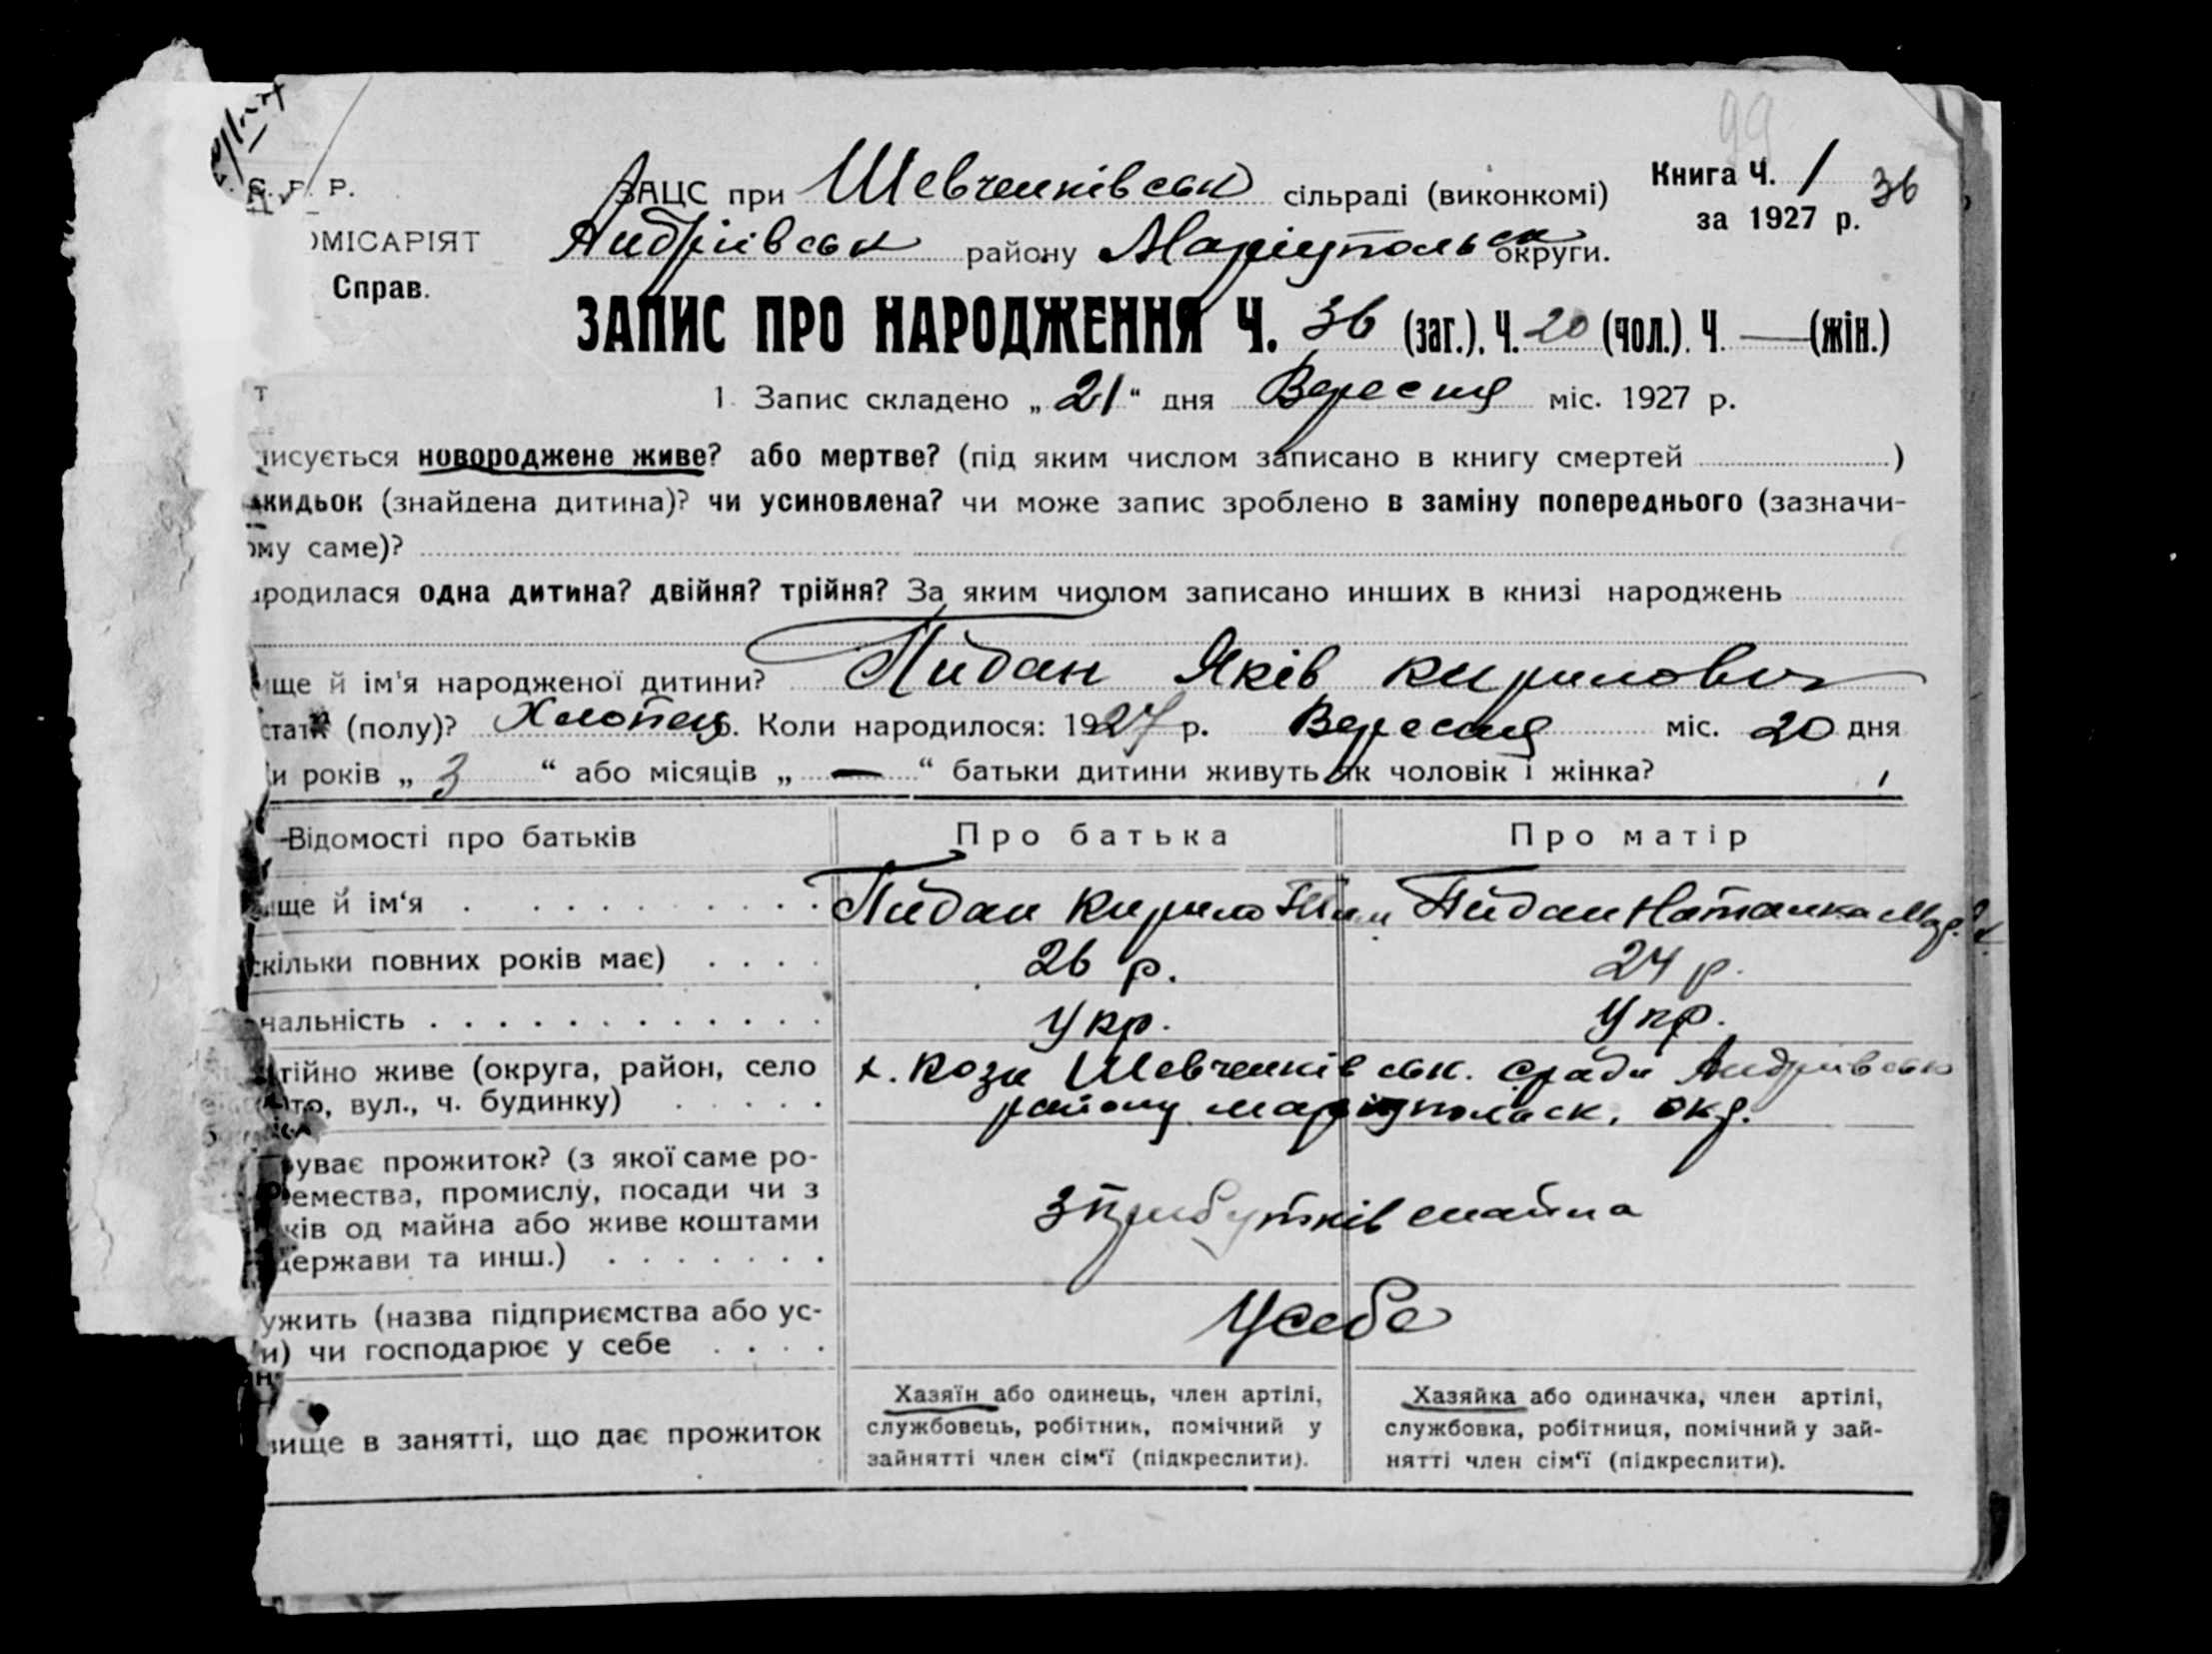 99
С. Р. Р.
ЗАЦС при Шевченківськ сільраді (виконкомі)
Книга Ч. 1 36
ОМІСАРІЯТ
Андріївськ району Маріупольськ округи.
за 1927 р.
Справ.
ЗАПИС ПРО НАРОДЖЕННЯ Ч. 36 (заг.). Ч. 20 (чол.). Ч. — (жін.)
1. Запис складено „21“ дня Вересня міс. 1927 р.
писується новороджене живе? або мертве? (під яким числом записано в книгу смертей )
кидьок (знайдена дитина)? чи усиновлена? чи може запис зроблено в заміну попереднього (зазначи-
ому саме)?
ародилася одна дитина? двійня? трійня? За яким числом записано инших в книзі народжень
ище й ім'я народженої дитини? Пидан Яків Кирилович
стати (полу)? Хлопець 6. Коли народилося: 1927 р. Вересня міс. 20 дня
и років „ 3 “ або місяців „ — “ батьки дитини живуть як чоловік і жінка?
Відомості про батьків Про батька Про матір
ище й ім‘я Пидан Кирило Тим Пидан Наталка
скільки повних років має) 26 р. 24 р.
нальність Укр. Укр.
тійно живе (округа, район, село х. Кози Шевченківськ. сради Андріївськ
то, вул., ч. будинку) району Маріупольск. окр.
ує прожиток? (з якої саме ро-
емества, промислу, посади чи з з прибутків майна
ків од майна або живе коштами
держави та инш.)
ужить (назва підприємства або ус- У себе
и) чи господарює у себе
Хазяїн або одинець, член артілі, Хазяйка або одиначка, член артілі,
вище в занятті, що дає прожиток службовець, робітник, помічний у службовка, робітниця, помічний у зай-
зайнятті член сім‘ї (підкреслити). нятті член сім‘ї (підкреслити).